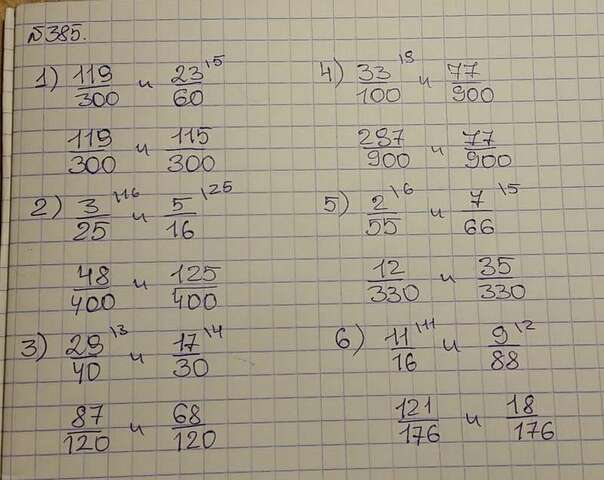 №385.
1) 119/300 и 23\5/60
119/300 и 115/300
2) 3\16/25 и 5\25/16
48/400 и 125/400
3) 29\3/40 и 17\4/30
87/120 и 68/120
4) 33\9/100 и 77/900
297/900 и 77/900
5) 2\6/55 и 7\5/66
12/330 и 35/330
6) 11\11/16 и 9\2/88
121/176 и 18/176